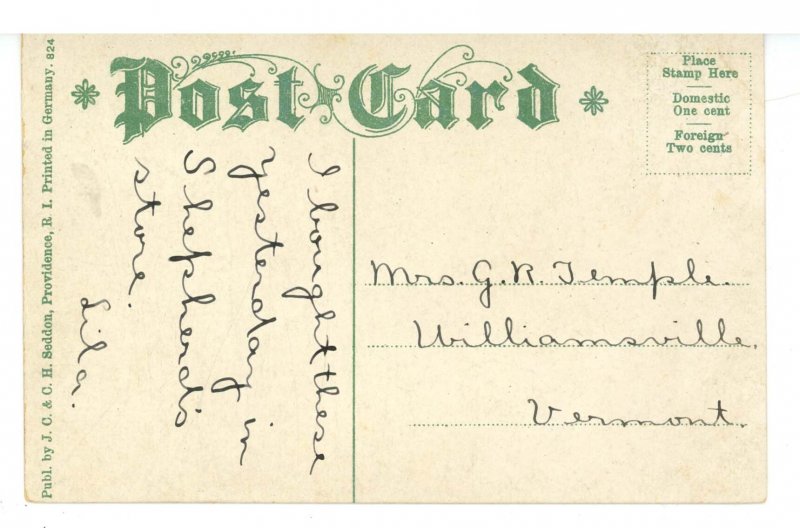 Post Card
Place
Stamp Here
Domestic
One cent
Foreign
Two cents
I bought these
yesterday in
Shepherd's
store.
Lila.
Mrs. G. R. Temple.
Williamsville,
Vermont.
Publ. by J. C. & C. H. Seddon, Providence, R. I. Printed in Germany. 824